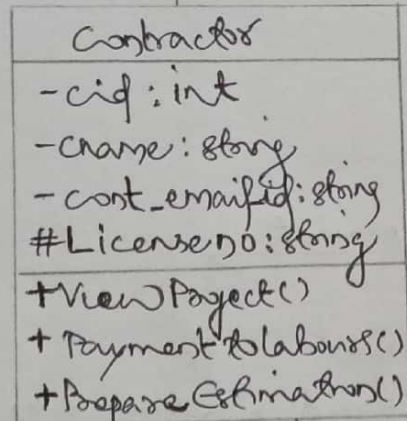 Contractor
-cid : int
-cname : string
-cont_emailid : string
#LicenseNO : string
+View Project()
+ Payment to labours()
+Prepare Estimation()